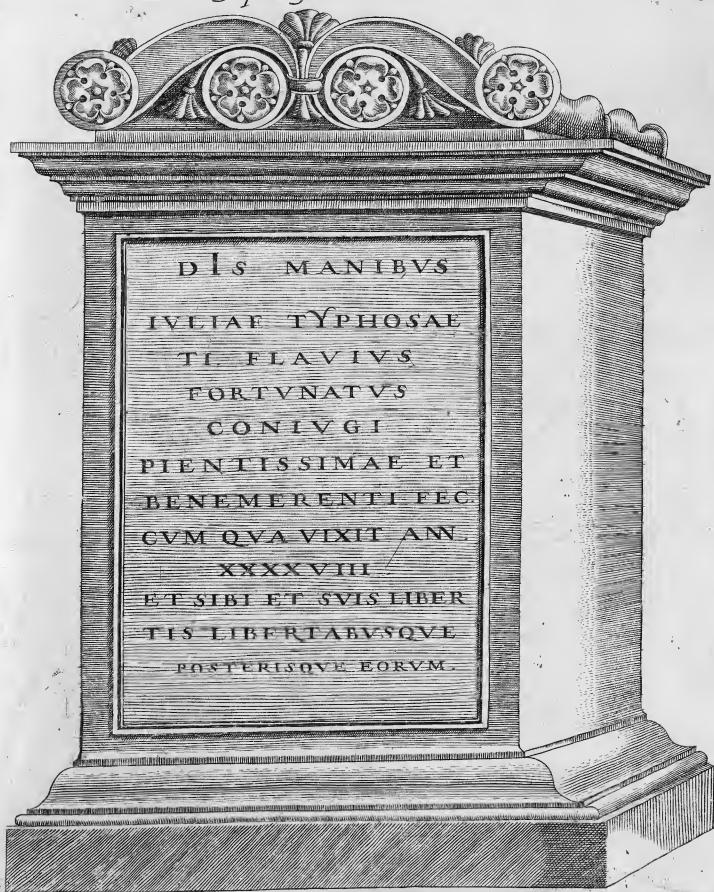 DIS MANIBVS
IVLIAE TYPHOSAE
TI FLAVIVS
FORTVNATVS
CONIVGI
PIENTISSIMAE ET
BENEMERENTI FEC.
CVM QVA VIXIT ANN.
XXXXVIII
ET SIBI ET SVIS LIBER
TIS LIBERTABVSQVE
POSTERISQVE EORVM.